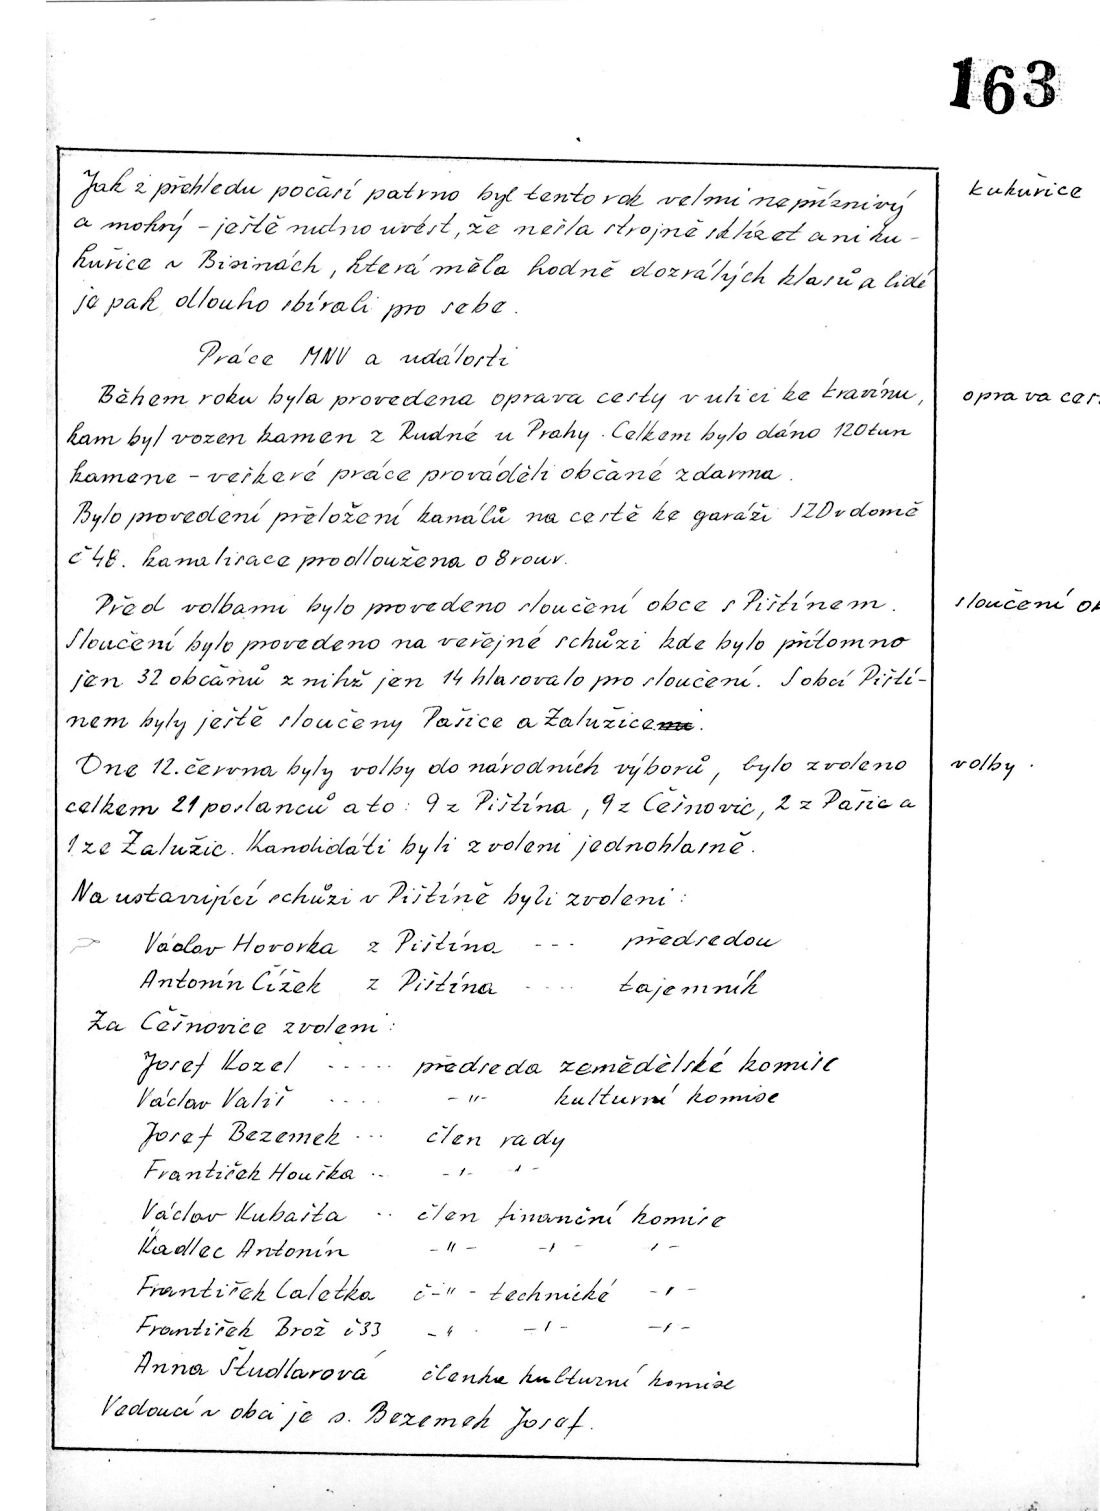 163
Jak z přehledu počasí patrno byl tento rok velmi nepříznivý
kukuřice
a mokrý - ještě nutno uvést, že nešla strojně sklízet ani ku-
kuřice v Bisinách, která měla hodně dozrálých klasů a lidé
je pak dlouho sbírali pro sebe.
Práce MNV a události
Během roku byla provedena oprava cesty v ulici ke Kravínu,
oprava ces
kam byl vozen kamen z Rudné u Prahy. Celkem bylo dáno 120 tun
kamene - veškeré práce prováděli občané zdarma.
Bylo provedení přeložení kanálů na cestě ke garáži JZD v domě
č 48. kanalisace prodloužena o 8 rour.
Před volbami bylo provedeno sloučení obce s Pištínem.
sloučení ob
Sloučení bylo provedeno na veřejné schůzi kde bylo přítomno
jen 32 občanů z nihž jen 14 hlasovalo pro sloučení. S obcí Piští-
nem byly ještě sloučeny Pašice a Zalužice.
Dne 12. června byly volby do národních výborů, bylo zvoleno
volby.
celkem 21 poslanců a to: 9 z Pištína, 9 z Češnovic, 2 z Pašic a
1 ze Zalužic. Kandidáti byli zvoleni jednohlasně.
Na ustavující schůzi v Pištíně byli zvoleni:
Václav Hovorka z Pištína --- předsedou
Antonín Čížek z Pištína .... tajemník
Za Češnovice zvoleni:
Josef Kozel ..... předseda zemědělské komise
Václav Vališ .... -"- kulturní komise
Josef Bezemek ... člen rady
František Houška .. -"- "-
Václav Kubašta .. člen finanční komise
Kadlec Antonín -"- -"- "-
František Caletka č-"- technické -"-
František Brož č33 -" . -"- -"-
Anna Študlarová členka kulturní komise
Vedoucí v obci je s. Bezemek Josef.